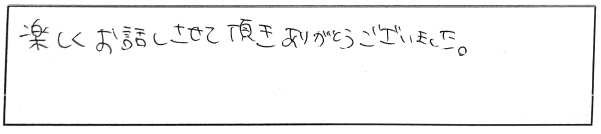 楽しくお話しさせて頂きありがとうございました。